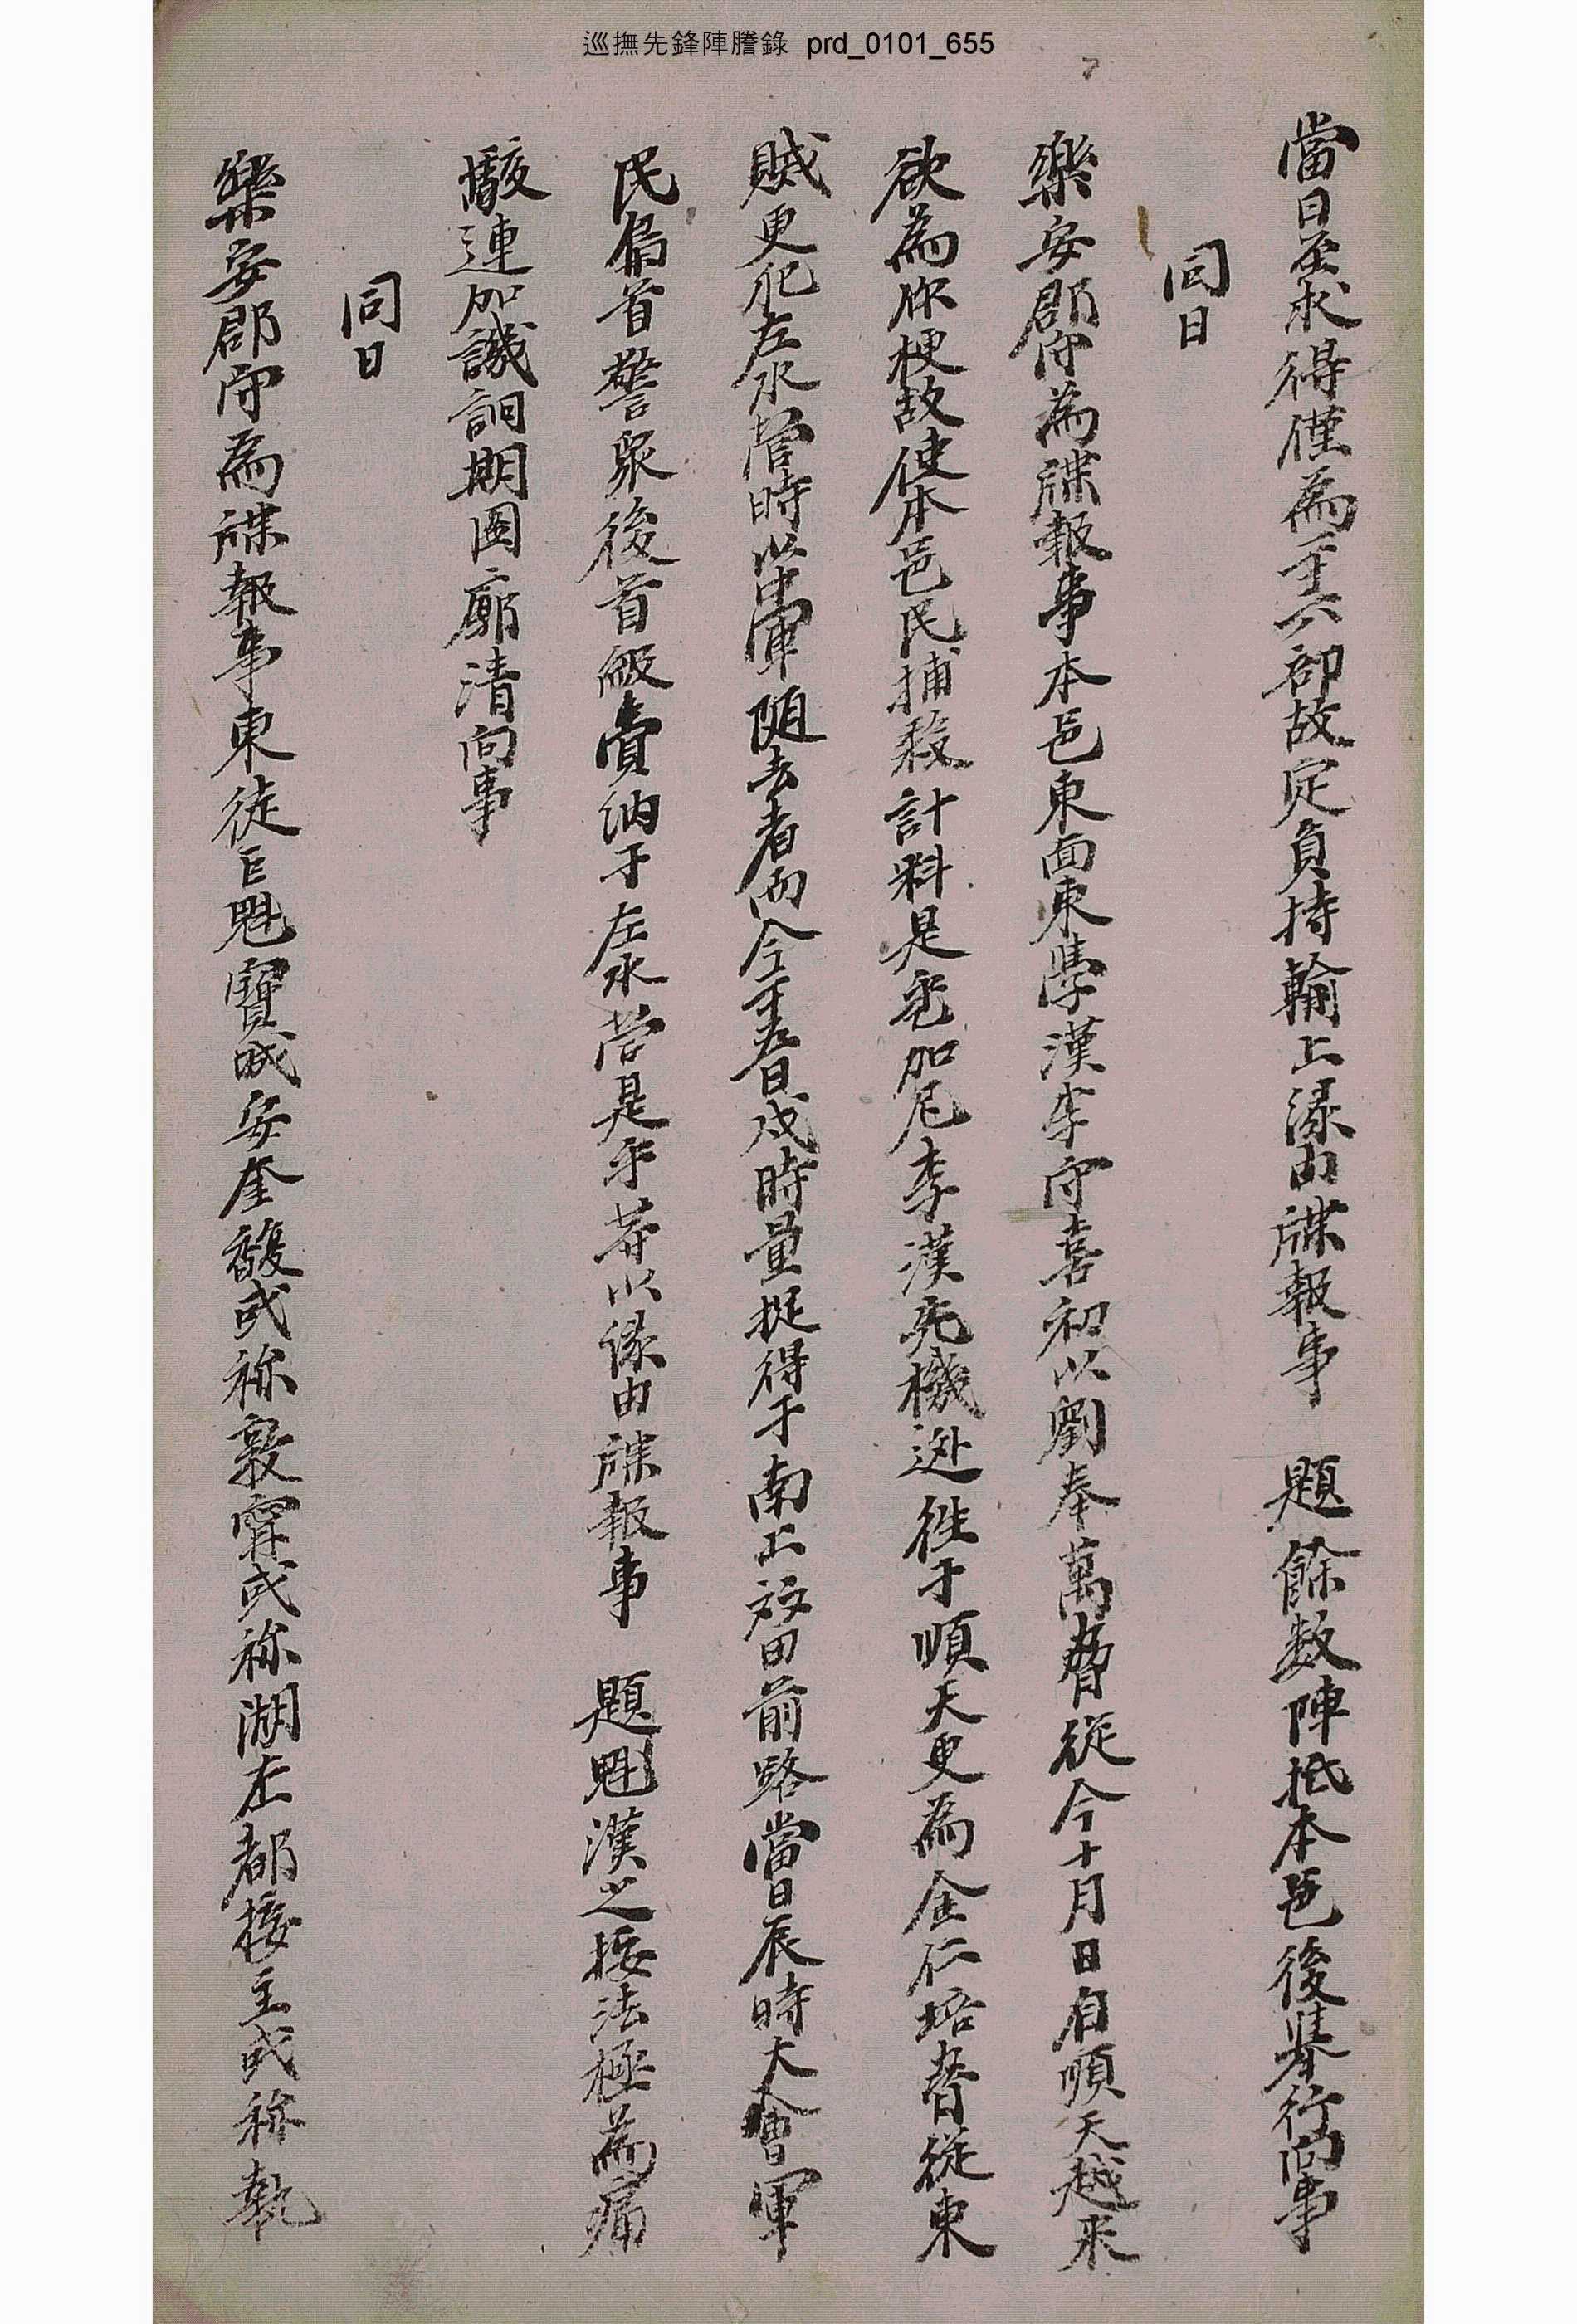 巡撫先鋒陣謄錄 prd_0101_655
當日至求得僅為二十六部故定負持輸上緣由牒報事 題 餘数陣抵本邑後擧行向事
同日
樂安郡守為牒報事本邑東面東學漢李守喜初以劉奉萬脅從今十月日自順天越來
欲為作梗故使本邑民捕殺計料是乎加尼李漢先機逃徃于順天更為金仁培脅從東
賊更犯左水營時以中軍随去者而今二十五日戌時量捉得于南上校田前路當日辰時大會軍
民梟首警衆後首級賫納于左水營是乎等以緣由牒報事 題 魁漢之按法極為痛
駭連加譏詗期圖廓清向事
同日
樂安郡守為牒報事東徒巨魁寶城安奎馥或称敦寧或称湖左都接主或称執